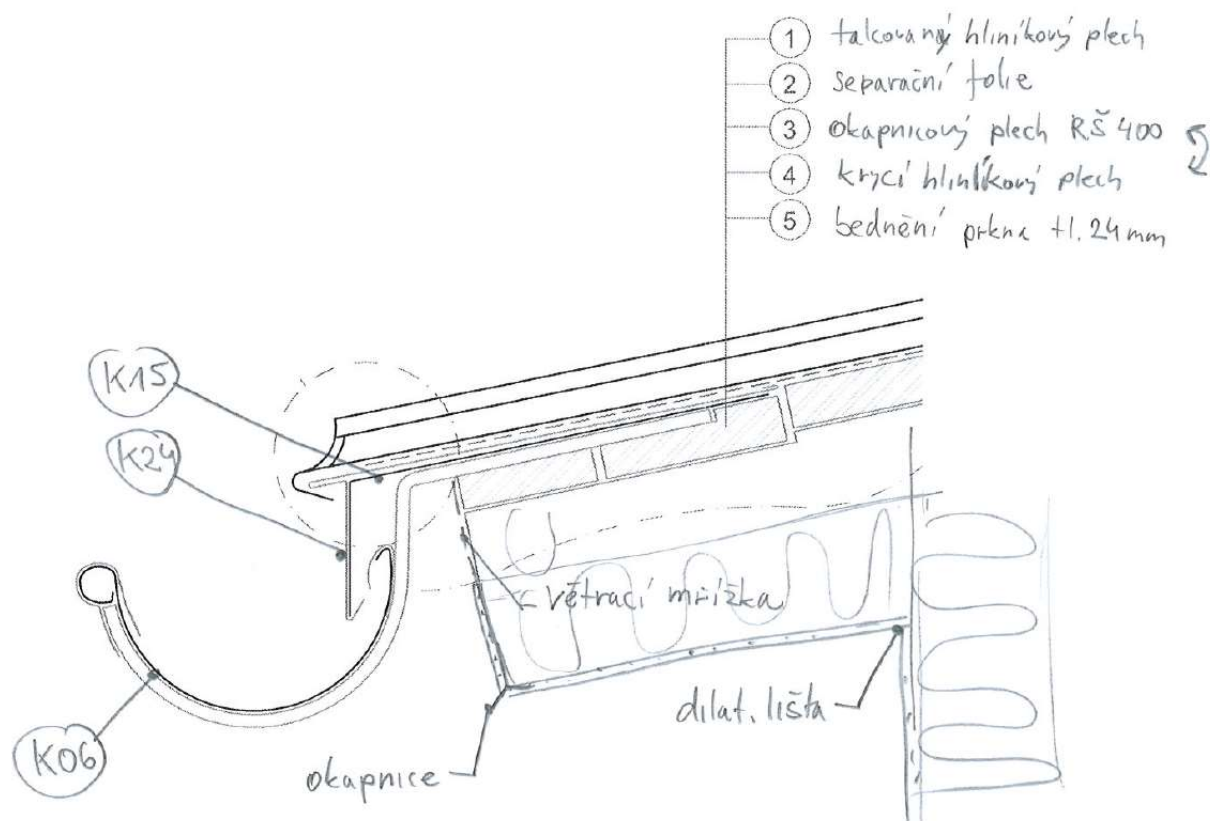 1 falcovaný hliníkový plech
2 separační folie
3 okapnicový plech RŠ 400
4 krycí hliníkový plech
5 bednění prkna tl. 24 mm
K15
K24
větrací mřížka
dilat. lišta
K06
okapnice